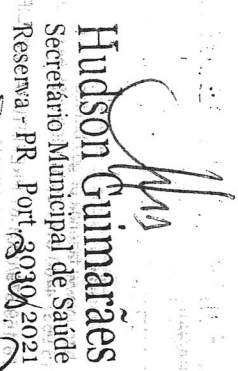 Hudson Guimarães
Secretário Municipal de Saúde
Reserva - PR Port. 2030/2021